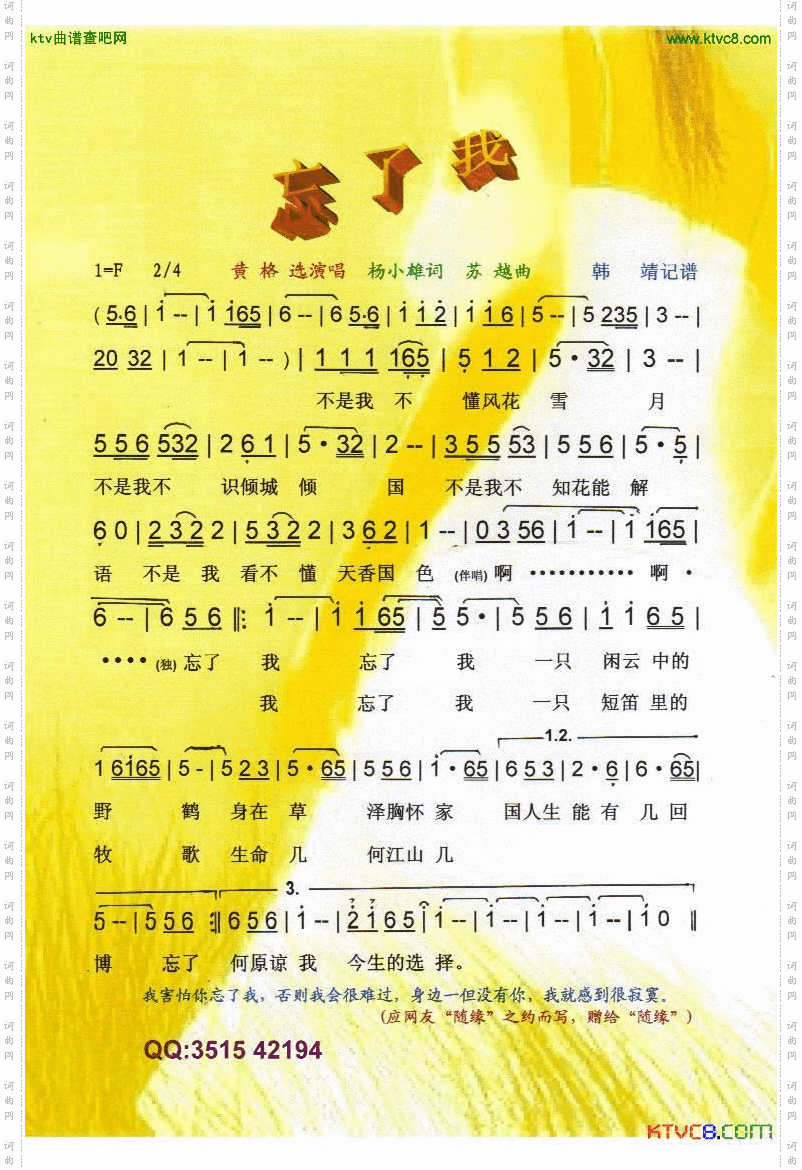 ktv曲谱查吧网 www.ktvc8.com
忘了我
1=F 2/4 黄 格 选演唱 杨小雄词 苏 越曲 韩 靖记谱
( 5·6 | 1 -- | 1 165 | 6 -- | 6 5·6 | 1 1 2 | 1 1 6 | 5 -- | 5 235 | 3 -- |
20 32 | 1 -- | 1 -- ) | 1 1 1 165 | 5 1 2 | 5 · 32 | 3 -- |
不是我 不 懂风花 雪 月
5 5 6 532 | 2 6 1 | 5 · 32 | 2 -- | 3 5 5 53 | 5 5 6 | 5 · 5 |
不是我不 识倾城 倾 国 不是我不 知花能 解
6 0 | 2 3 2 2 | 5 3 2 2 | 3 6 2 | 1 -- | 0 3 56 | 1 -- | 1 165 |
语 不是 我 看不 懂 天香国 色 (伴唱) 啊 ··········· 啊 ·
6 -- | 6 5 6 ‖: 1 -- | 1 1 65 | 5 5 · | 5 5 6 | 1 1 6 5 |
···· (独) 忘了 我 忘了 我 一只 闲云 中的
我 忘了 我 一只 短笛 里的
1.2.
1 6165 | 5 - | 5 2 3 | 5 · 65 | 5 5 6 | 1 · 65 | 6 5 3 | 2 · 6 | 6 · 65 |
野 鹤 身在 草 泽胸怀 家 国人生 能 有 几 回
牧 歌 生命 几 何江山 几
3.
5 -- | 5 5 6 :‖ 6 5 6 | 1 -- | 2 1 6 5 | 1 -- | 1 -- | 1 -- | 1 -- | 1 0 ‖
博 忘了 何原谅 我 今生的 选 择。
我害怕你忘了我，否则我会很难过，身边一但没有你，我就感到很寂寞。
(应网友“随缘”之约而写，赠给“随缘”)
QQ:3515 42194
KTVC8.COM